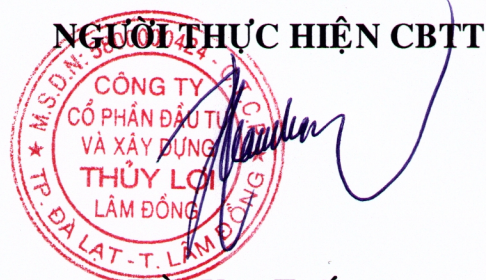 NGƯỜI THỰC HIỆN CBTT
CÔNG TY
CỔ PHẦN ĐẦU TƯ
VÀ XÂY DỰNG
THỦY LỢI
LÂM ĐỒNG
TP. ĐÀ LẠT - T. LÂM ĐỒNG